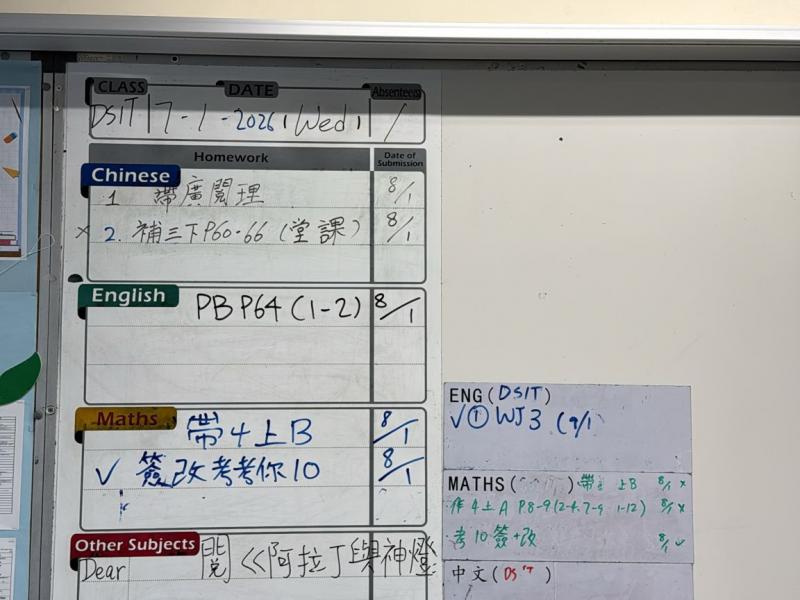 CLASS DATE Absentees
DSIT 7-1-2026 (Wed) /
Homework Date of Submission
Chinese
1 帶廣閱理 8/1
× 2. 補三下P60-66 (堂課) 8/1
English
PB P64 (1-2) 8/1
Maths
帶4上B 8/1
✓ 簽改考考你10 8/1
Other Subjects
Dear 閱 <<阿拉丁與神燈
ENG (DSIT)
✓ ① WJ3 (9/1)
MATHS ( ) 帶 上B 8/1 ×
作4上A P8-9 8/1 ×
考10簽+改 8/1 ✓
中文 (DSIT)